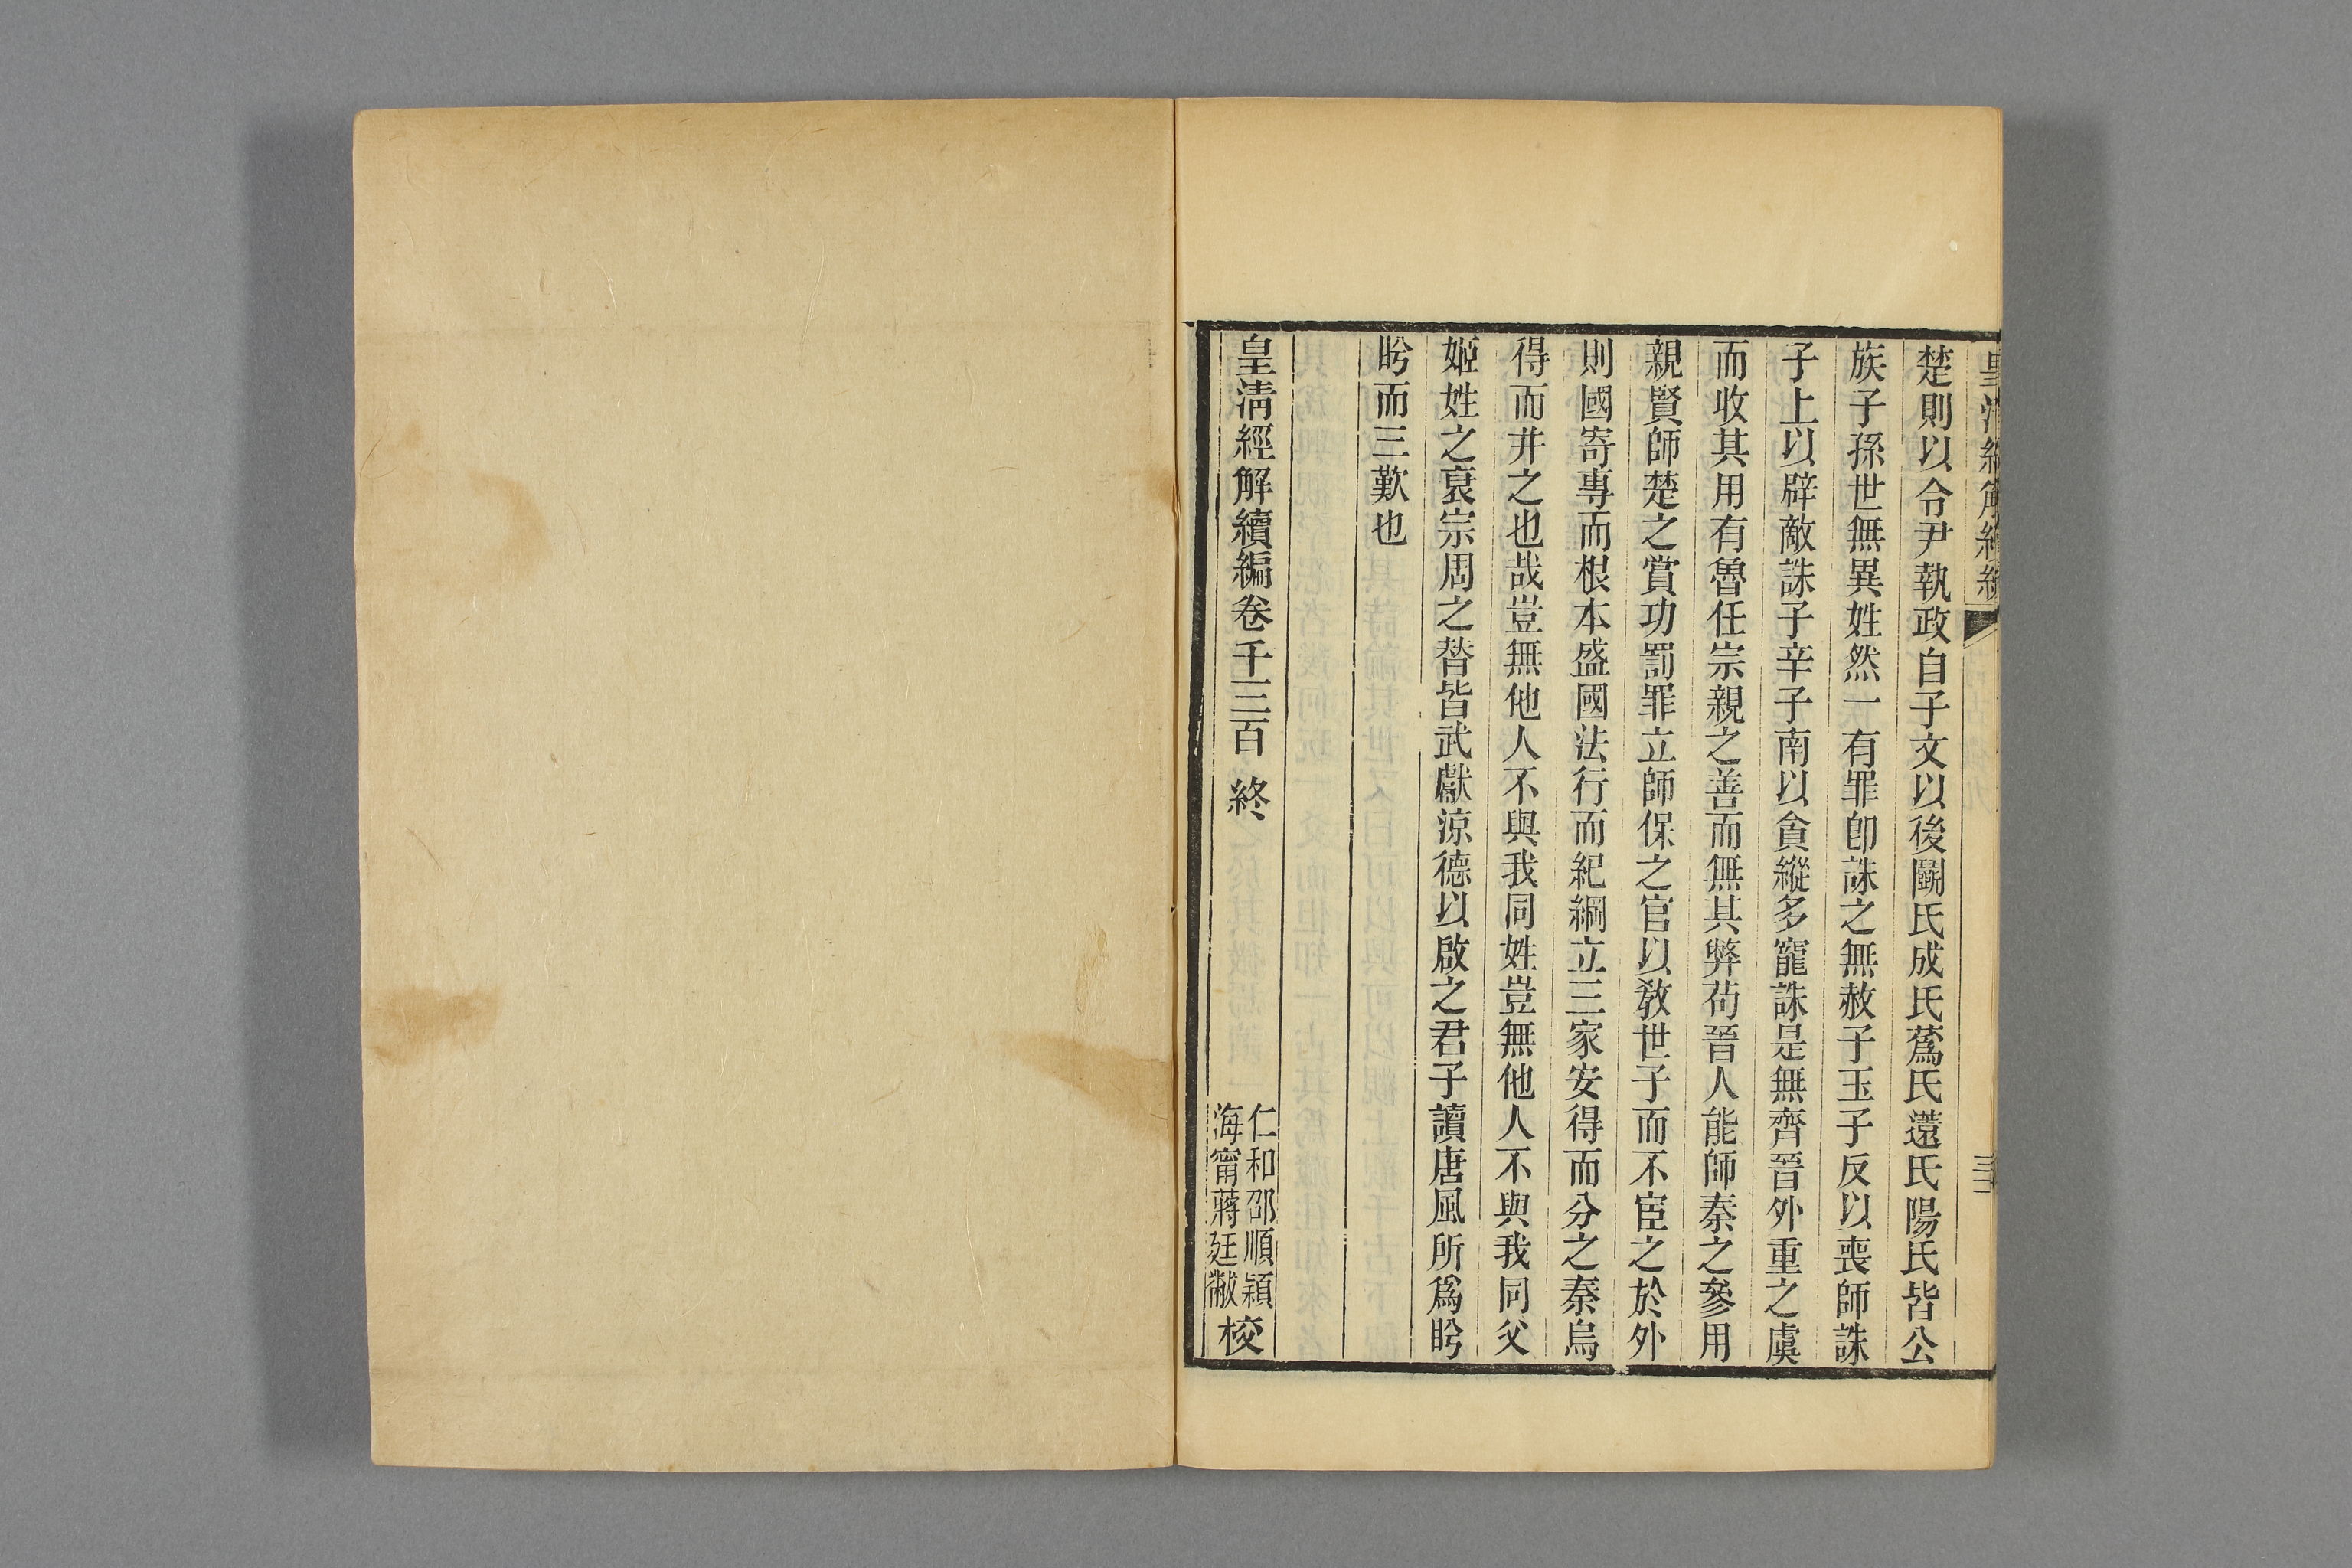 皇清經解續編
三
楚則以令尹執政自子文以後鬭氏成氏蔿氏薳氏陽氏皆公
族子孫世無異姓然一有罪卽誅之無赦子玉子反以喪師誅
子上以辟敵誅子辛子南以貪縱多寵誅是無齊晉外重之虞
而收其用有魯任宗親之善而無其弊苟晉人能師秦之參用
親賢師楚之賞功罰罪立師保之官以敎世子而不宦之於外
則國寄專而根本盛國法行而紀綱立三家安得而分之秦烏
得而幷之也哉豈無他人不與我同姓豈無他人不與我同父
姬姓之衰宗周之替皆武獻涼德以啟之君子讀唐風所爲盻
盻而三歎也
皇淸經解續編卷千三百 終
仁和邵順穎
海甯蔣廷黻
校